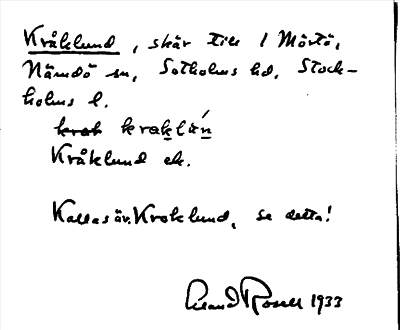 Kråklund, skär till 1 Mörtö,
Nämdö sn, Sotholms hd, Stock-
holms l.
kraklún
Kråklund ek.
Kallas äv. Kroklund, se detta!
Rosell 1933